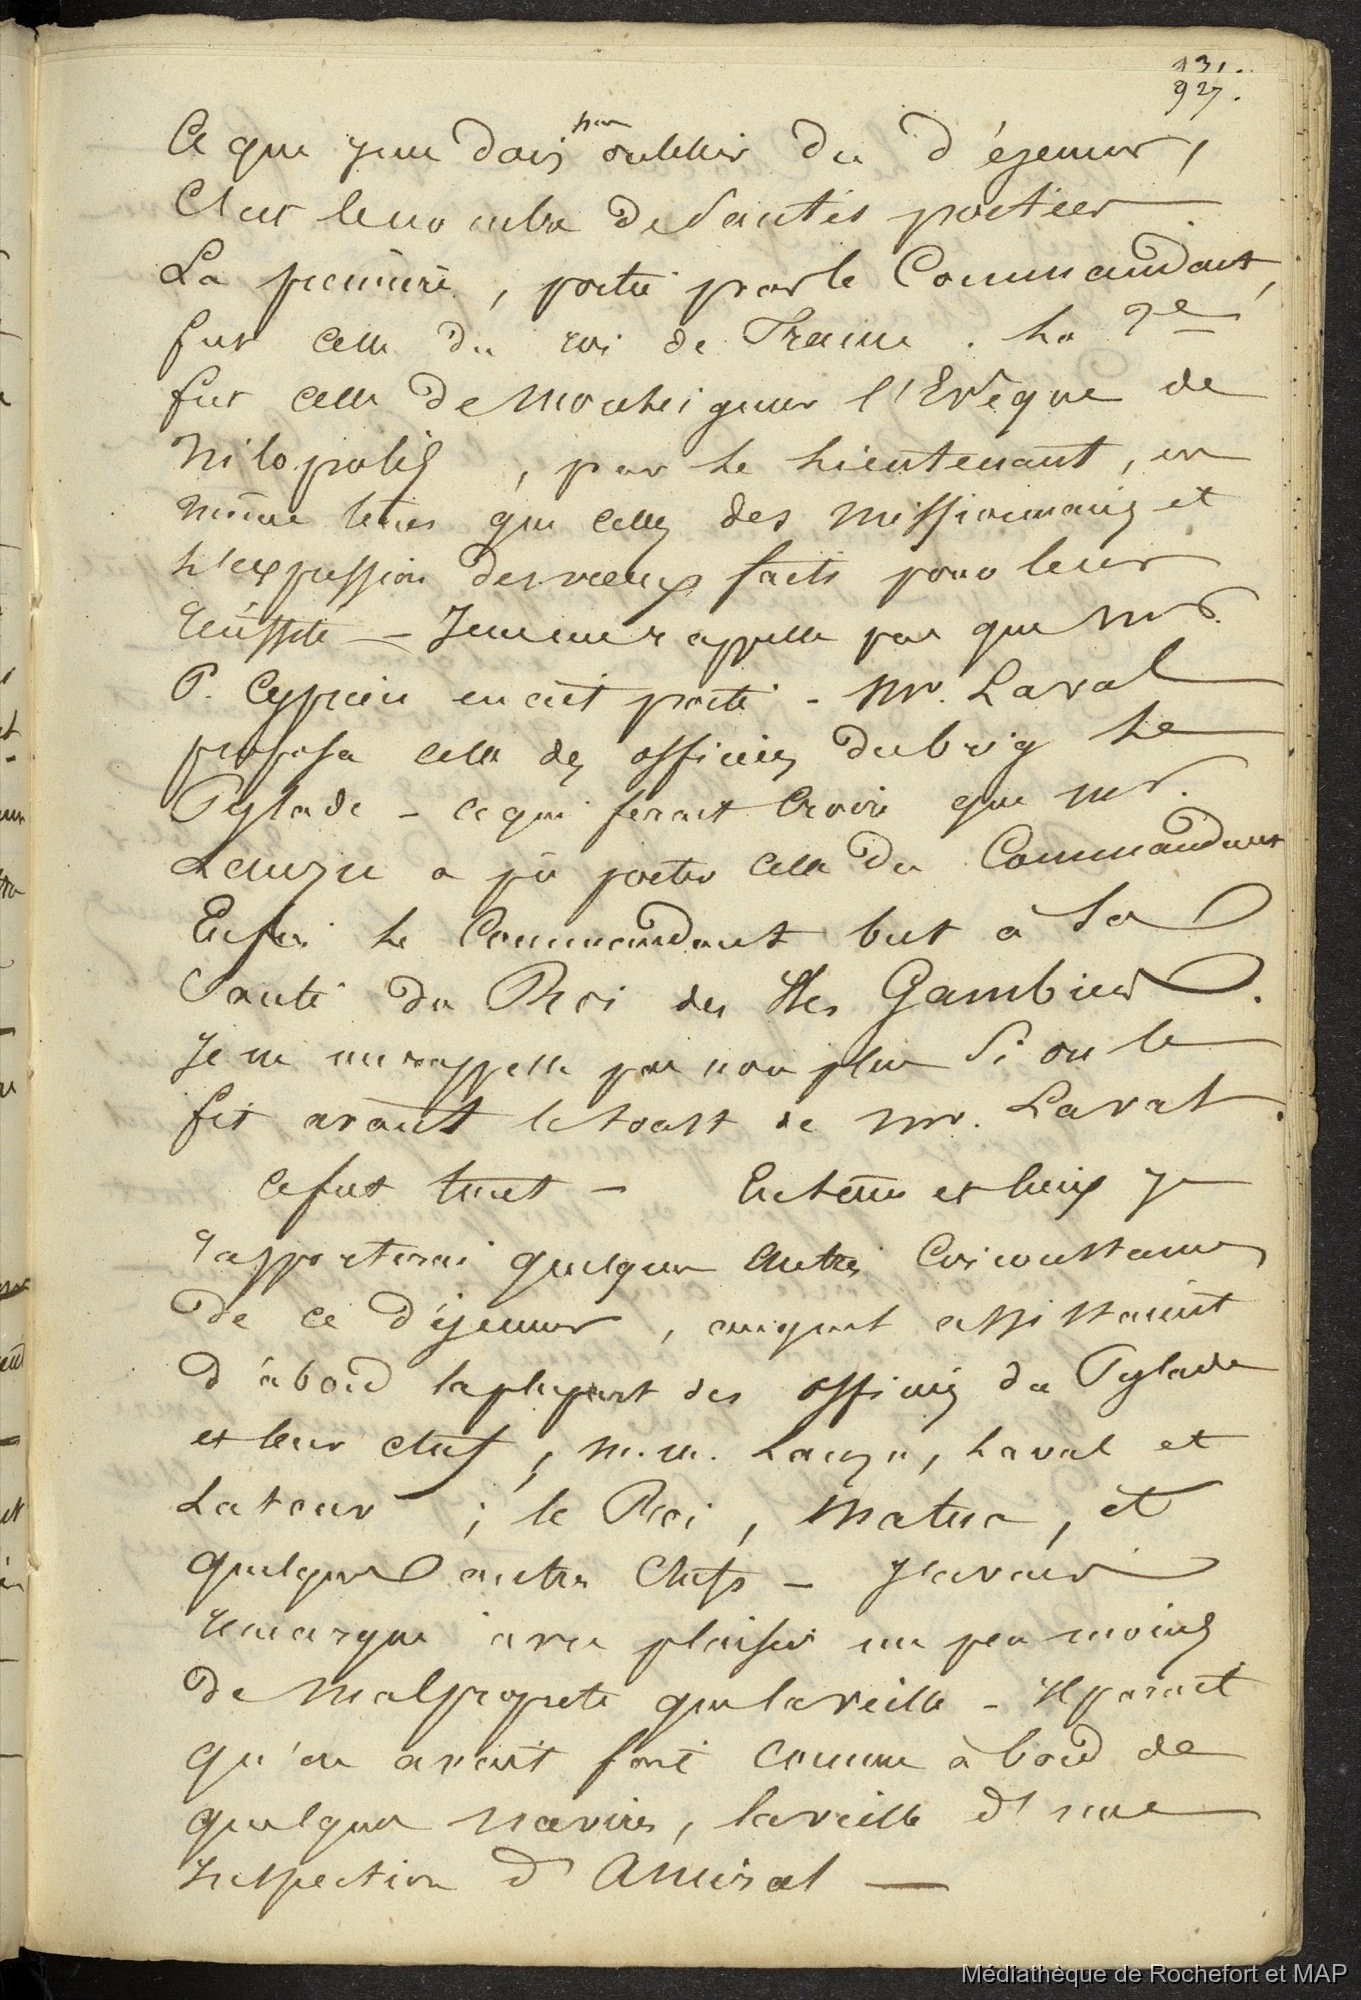 131.
927.
Ce que je ne dois pas oublier du déjeuner,
C'est le nombre de Santés portées
La première, portée par le Commandant,
fut celle du roi de France. La 2e
fut celle de Monseigneur l'Evêque de
Nilopolis, par le Lieutenant, en
même tems que celles des Missionnaires et
L'expression des vœux faits pour leur
réussite — Je ne me rappelle pas que Mr.
P. Cyprien en ait porté - Mr. Laval
proposa celle des officiers du brig Le
Pylade - ce qui ferait Croire que Mr.
Lauzu a pû porter celle du Commandant
Enfin le Commandant but à la
Santé du Roi des Iles Gambier.
Je ne me rappelle pas non plus Si on le
fit avant le toast de Mr. Laval.
Ce fut tout - En tems et lieux je
rapporterai quelques autres Circonstances
de ce déjeuner, auquel assistaient
d'abord la plupart des officiers du Pylade
et leur chef, m.m. Lauzu, Laval et
Latour ; le Roi, Matua, et
quelques autres Chefs - J'avais
remarqué avec plaisir un peu moins
de Malpropreté que la veille - Il parait
qu'on avait fait comme à bord de
quelques navires, la veille d'une
Inspection d'Amiral —
Médiathèque de Rochefort et MAP